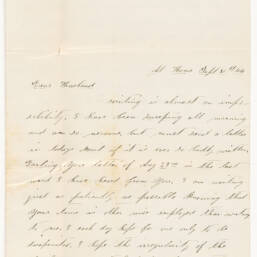 At Home Sept 2nd 64
Dear Husband
Writing is almost an imposs
ibility. I have been sweeping all morning
and am so nervous, but must send a letter
in today mail if it is ever so badly written.
Darling your letter of Aug 23rd is the last
word I have had from you. I am waiting
just as patiently as possible knowing that
your time is other wise employed than writing
to me, & each day hope for one only to be
disappointed. I hope the irregularity of the